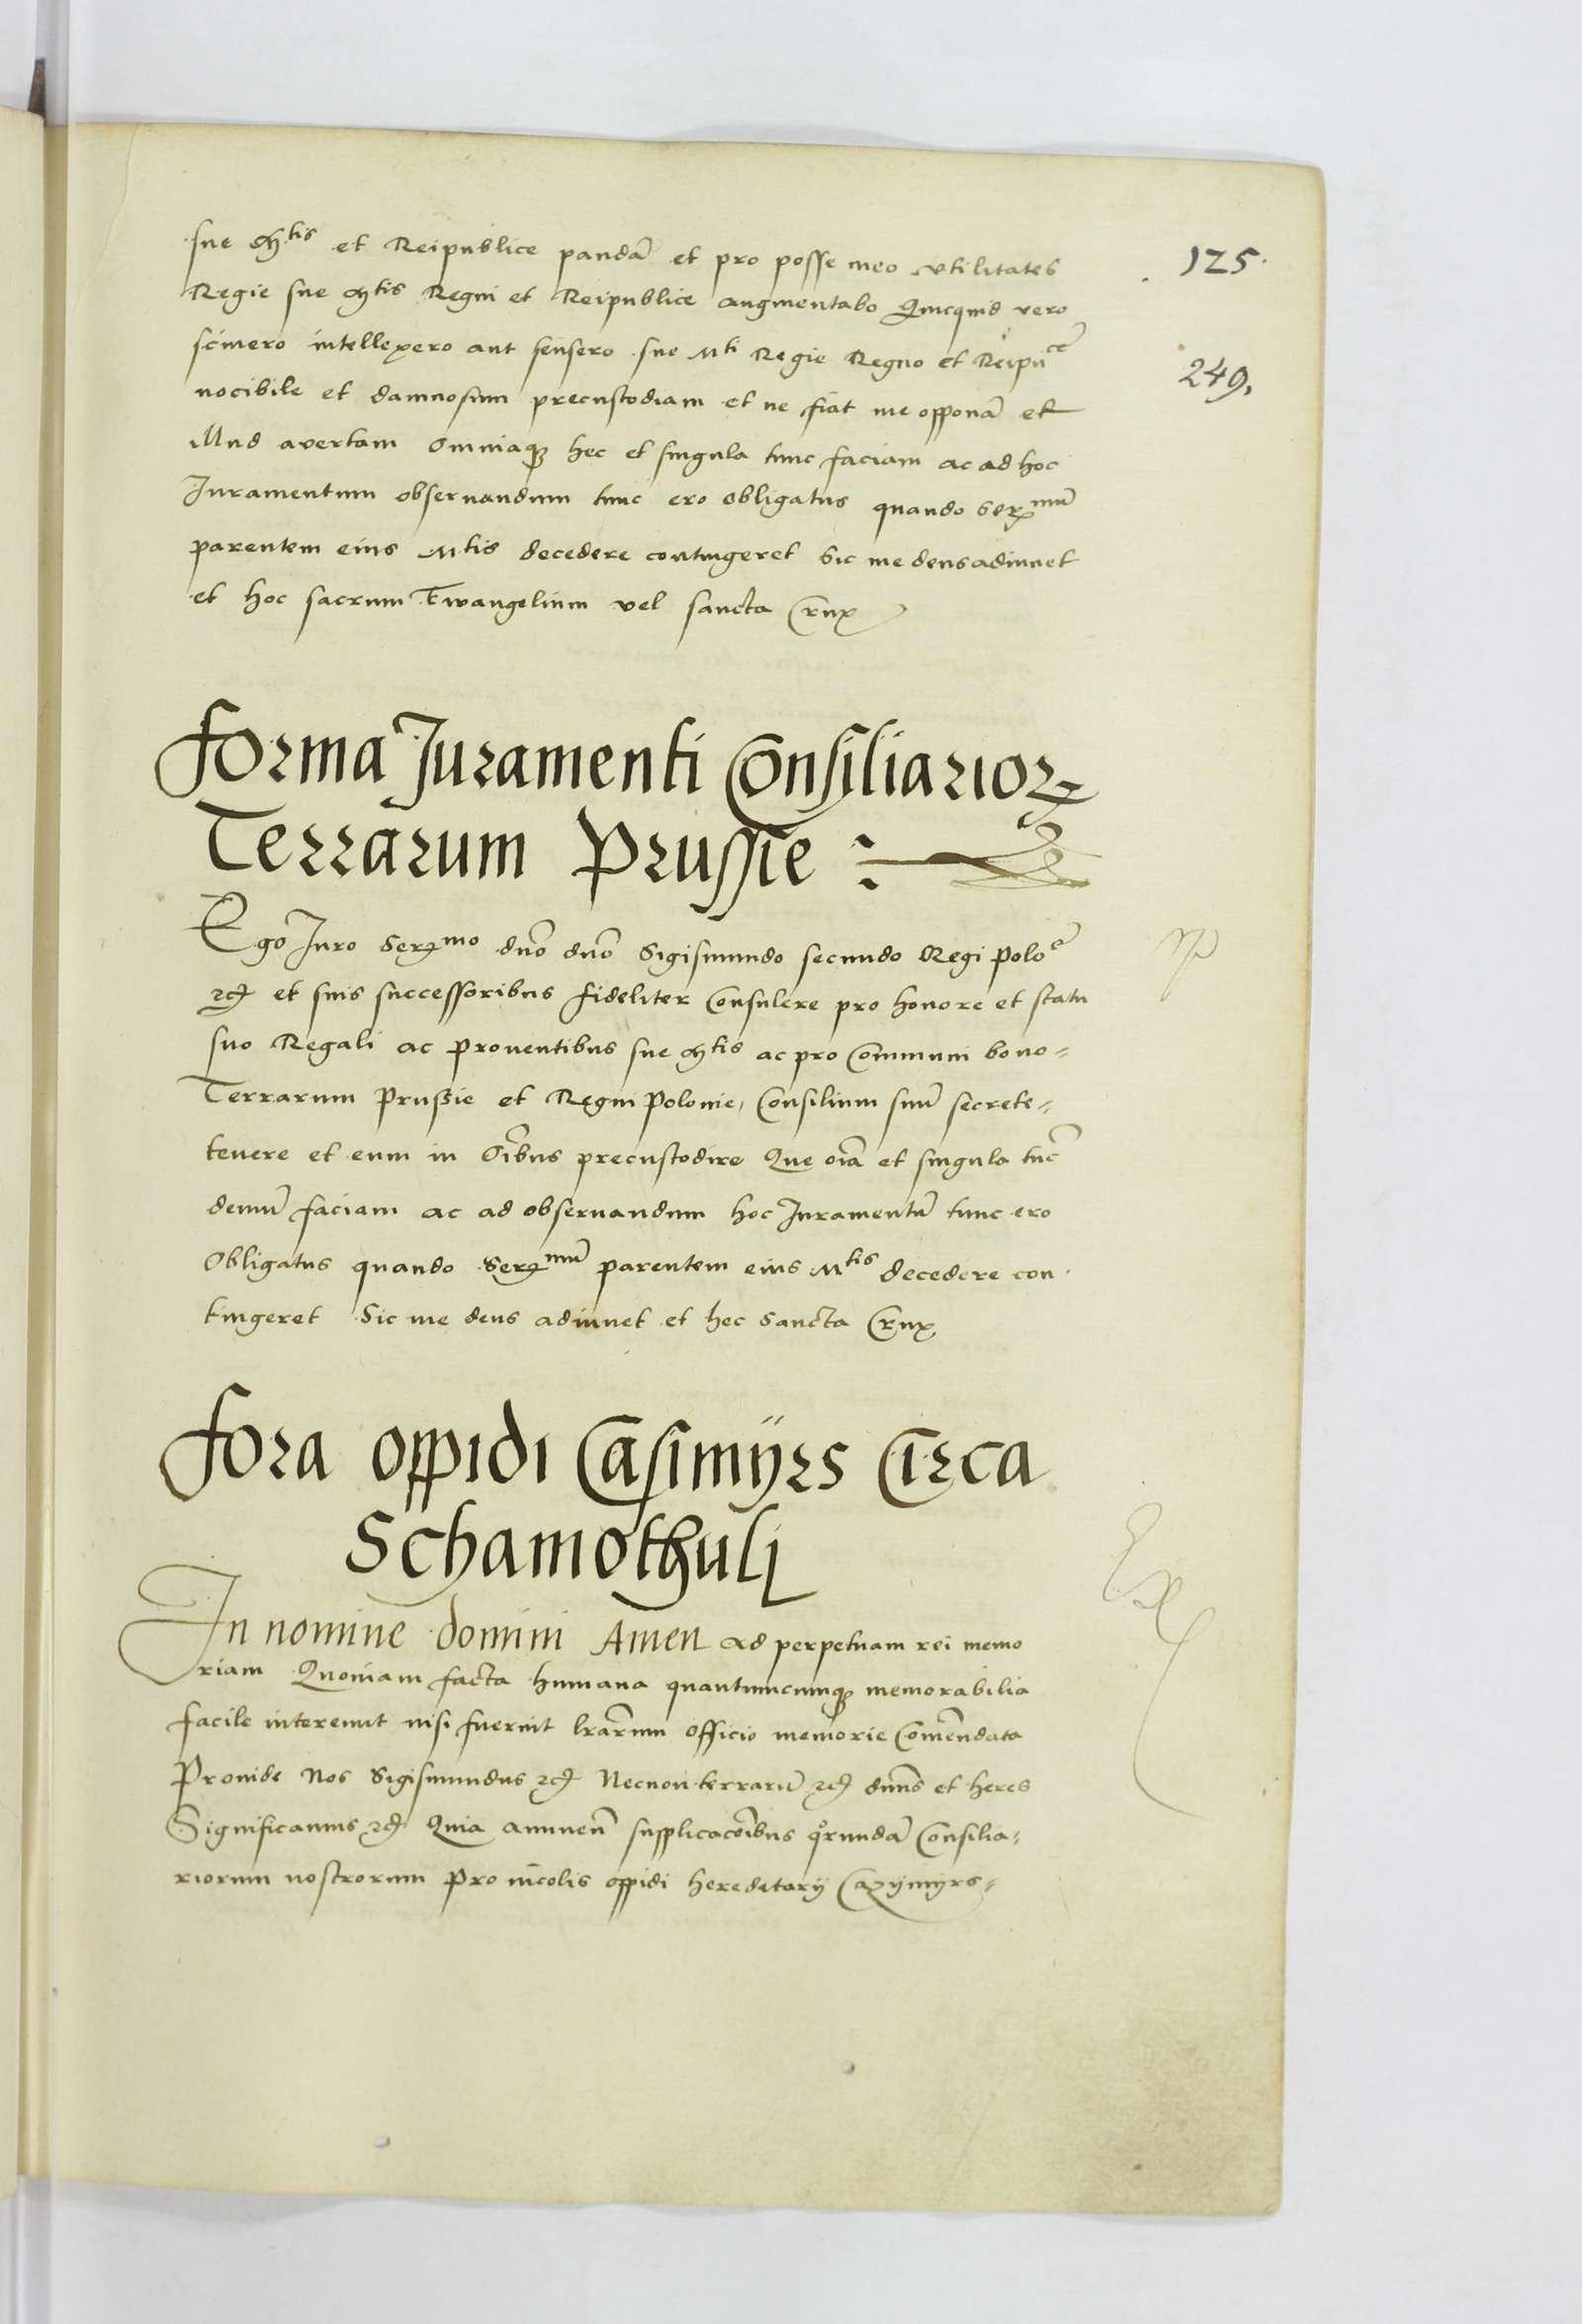 125.
249.
sue M.tis et Reipublice pandā et pro posse meo vtilitates
Regie sue Mtis Regni et Reipublice augmentabo Quicquid vero
scivero intellexero aut sensero sue Mti Regie Regno et Reipuce
nocibile et damnosum precustodiam et ne fiat me opponā et
illud avertam Omniaqꝫ hec et singula tunc faciam ac ad hoc
Juramentum obseruandum tunc ero obligatus quando Sermū
parentem eius Mtis decedere contingeret Sic me deus adiuuet
et hoc sacrum Ewangelium vel sancta Crux
Forma Juramenti Consiliarioꝝ
Terrarum Prussie :
Ego Juro Sermo dno dno Sigismundo secundo Regi Poloe
np
etc et suis successoribus fideliter Consulere pro honore et statu
suo Regali ac prouentibus sue Mtis ac pro Communi bono=
Terrarum Prussie et Regni Polonie, Consilium suū secrete=
tenere et eum in Oībus precustodire Que oīa et singula tūc
demū faciam ac ad obseruandum hoc Juramentū tunc ero
Obligatus quando Sermū parentem eius Mtis decedere con
tingeret Sic me deus adiuuet et hec Sancta Crux
Fora oppidi Casimÿrs Circa
Schamothuli
Ex
In nomine domini Amen ad perpetuam rei memo
riam Quoniam facta humana quantumcumqꝫ memorabilia
facile intereunt nisi fuerint lrarum officio memorie Comendata
Proinde Nos Sigismundus etc Necnon terrarū etc dnus et heres
Significamus etc Quia annuen supplicacoībus qorundā Consilia=
riorum nostrorum pro incolis oppidi hereditarÿ Cazÿmÿrs=